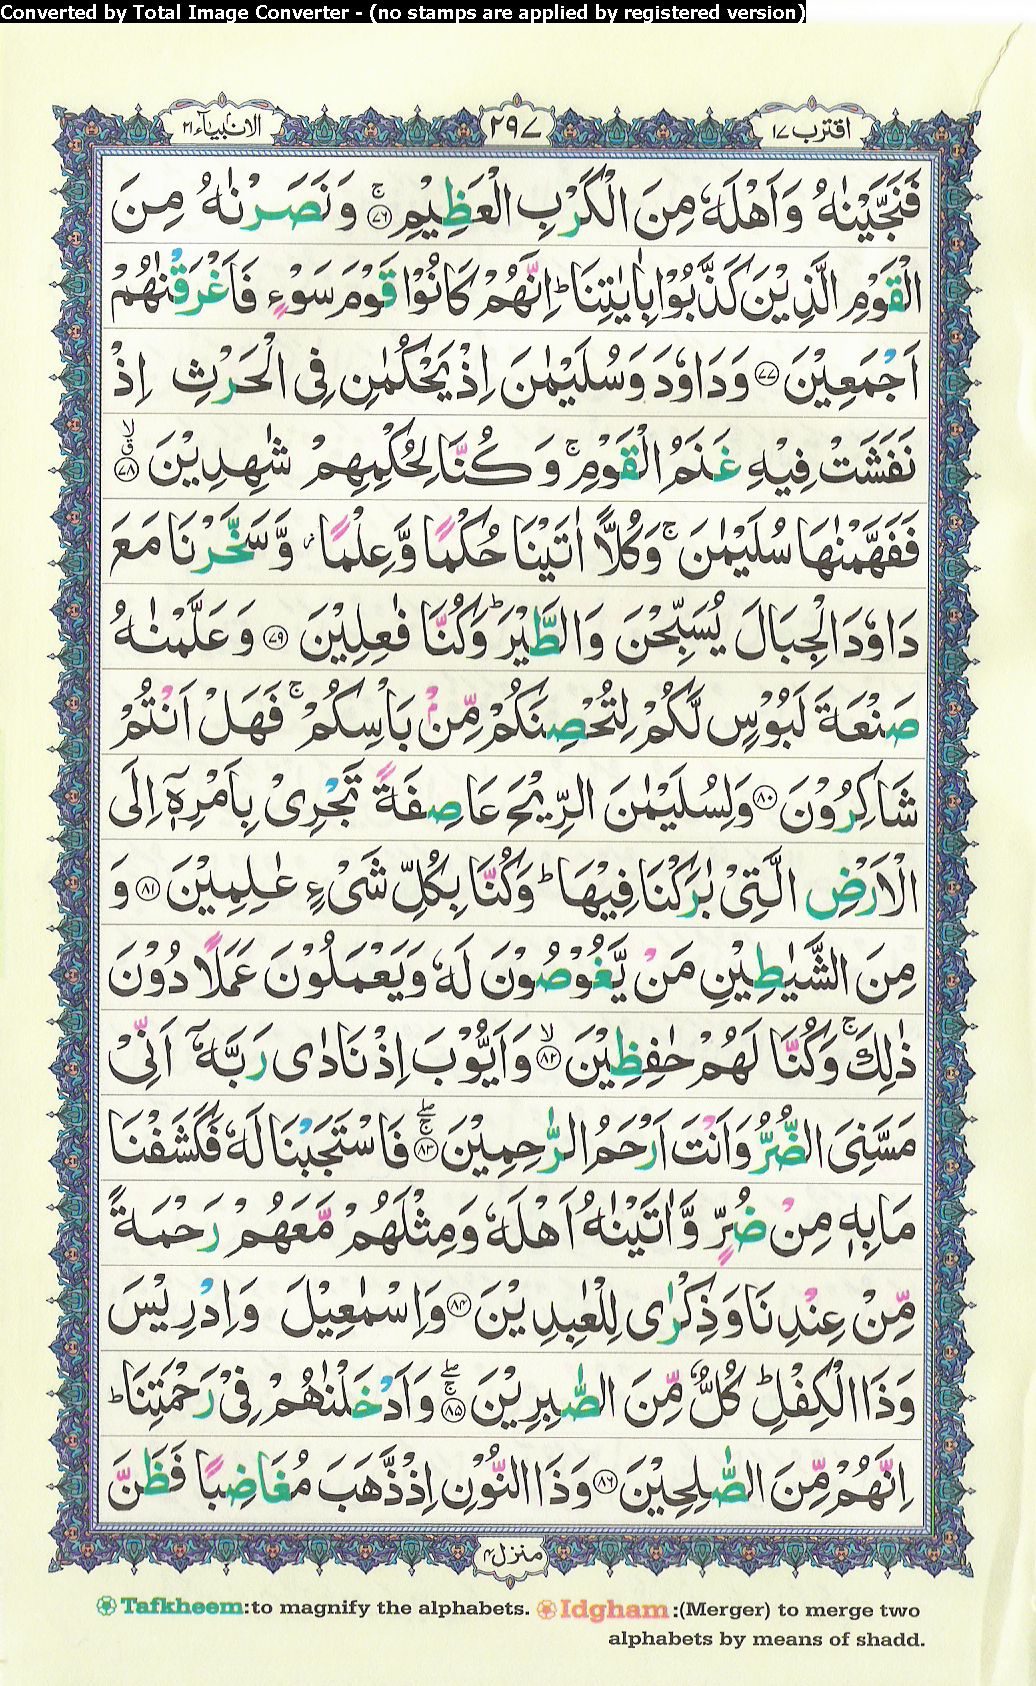 Converted by Total Image Converter - (no stamps are applied by registered version)
اقترب ١٧
٢٩٧
الانبیآء ٢١
فَنَجَّيْنٰهُ وَاَهْلَهٗ مِنَ الْكَرْبِ الْعَظِيْمِ ۚ‏﴿٧٦﴾ وَنَصَرْنٰهُ مِنَ
الْقَوْمِ الَّذِيْنَ كَذَّبُوْا بِاٰيٰتِنَا ؕ اِنَّهُمْ كَانُوْا قَوْمَ سَوْءٍ فَاَغْرَقْنٰهُمْ
اَجْمَعِيْنَ ﴿٧٧﴾ وَدَاوٗدَ وَسُلَيْمٰنَ اِذْ يَحْكُمٰنِ فِى الْحَرْثِ اِذْ
نَفَشَتْ فِيْهِ غَنَمُ الْقَوْمِ ۚ وَكُنَّا لِحُكْمِهِمْ شٰهِدِيْنَ ۙ ق ﴿٧٨﴾
فَفَهَّمْنٰهَا سُلَيْمٰنَ ۚ وَكُلًّا اٰتَيْنَا حُكْمًا وَّعِلْمًا ؗ وَّسَخَّرْنَا مَعَ
دَاوٗدَ الْجِبَالَ يُسَبِّحْنَ وَالطَّيْرَ ؕ وَكُنَّا فٰعِلِيْنَ ﴿٧٩﴾ وَعَلَّمْنٰهُ
صَنْعَةَ لَبُوْسٍ لَّكُمْ لِتُحْصِنَكُمْ مِّنْۢ بَاْسِكُمْ ۚ فَهَلْ اَنْتُمْ
شَاكِرُوْنَ ﴿٨٠﴾ وَلِسُلَيْمٰنَ الرِّيْحَ عَاصِفَةً تَجْرِىْ بِاَمْرِهٖۤ اِلَى
الْاَرْضِ الَّتِىْ بٰرَكْنَا فِيْهَا ؕ وَكُنَّا بِكُلِّ شَىْءٍ عٰلِمِيْنَ ﴿٨١﴾ وَ
مِنَ الشَّيٰطِيْنِ مَنْ يَّغُوْصُوْنَ لَهٗ وَيَعْمَلُوْنَ عَمَلًا دُوْنَ
ذٰلِكَ ۚ وَكُنَّا لَهُمْ حٰفِظِيْنَ ۙ ﴿٨٢﴾ وَاَيُّوْبَ اِذْ نَادٰى رَبَّهٗۤ اَنِّىْ
مَسَّنِىَ الضُّرُّ وَاَنْتَ اَرْحَمُ الرّٰحِمِيْنَ ۖ ۚ ﴿٨٣﴾ فَاسْتَجَبْنَا لَهٗ فَكَشَفْنَا
مَا بِهٖ مِنْ ضُرٍّ وَّاٰتَيْنٰهُ اَهْلَهٗ وَمِثْلَهُمْ مَّعَهُمْ رَحْمَةً
مِّنْ عِنْدِنَا وَذِكْرٰى لِلْعٰبِدِيْنَ ﴿٨٤﴾ وَاِسْمٰعِيْلَ وَاِدْرِيْسَ
وَذَا الْكِفْلِ ؕ كُلٌّ مِّنَ الصّٰبِرِيْنَ ۖ ۚ ﴿٨٥﴾ وَاَدْخَلْنٰهُمْ فِىْ رَحْمَتِنَا ؕ
اِنَّهُمْ مِّنَ الصّٰلِحِيْنَ ﴿٨٦﴾ وَذَا النُّوْنِ اِذْ ذَّهَبَ مُغَاضِبًا فَظَنَّ
منزل ٤
Tafkheem:to magnify the alphabets. Idgham:(Merger) to merge two
alphabets by means of shadd.